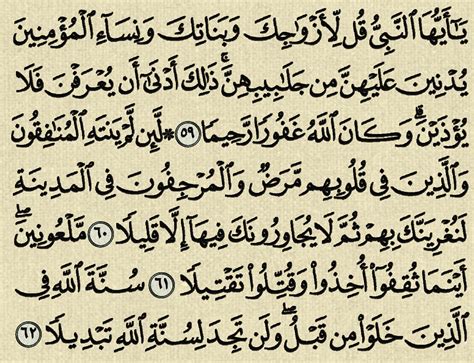 يَـٰٓأَيُّهَا ٱلنَّبِىُّ قُل لِّأَزۡوَٰجِكَ وَبَنَاتِكَ وَنِسَآءِ ٱلۡمُؤۡمِنِينَ
يُدۡنِينَ عَلَيۡهِنَّ مِن جَلَـٰبِيبِهِنَّۚ ذَٰلِكَ أَدۡنَىٰٓ أَن يُعۡرَفۡنَ فَلَا
يُؤۡذَيۡنَۗ وَكَانَ ٱللَّهُ غَفُورًا رَّحِيمًا ٥٩ ۞ لَّئِن لَّمۡ يَنتَهِ ٱلۡمُنَـٰفِقُونَ
وَٱلَّذِينَ فِى قُلُوبِهِم مَّرَضٌ وَٱلۡمُرۡجِفُونَ فِى ٱلۡمَدِينَةِ
لَنُغۡرِيَنَّكَ بِهِمۡ ثُمَّ لَا يُجَاوِرُونَكَ فِيهَآ إِلَّا قَلِيلًا ٦٠ مَّلۡعُونِينَۖ
أَيۡنَمَا ثُقِفُوٓاْ أُخِذُواْ وَقُتِّلُواْ تَقۡتِيلًا ٦١ سُنَّةَ ٱللَّهِ فِى
ٱلَّذِينَ خَلَوۡاْ مِن قَبۡلُۖ وَلَن تَجِدَ لِسُنَّةِ ٱللَّهِ تَبۡدِيلًا ٦٢